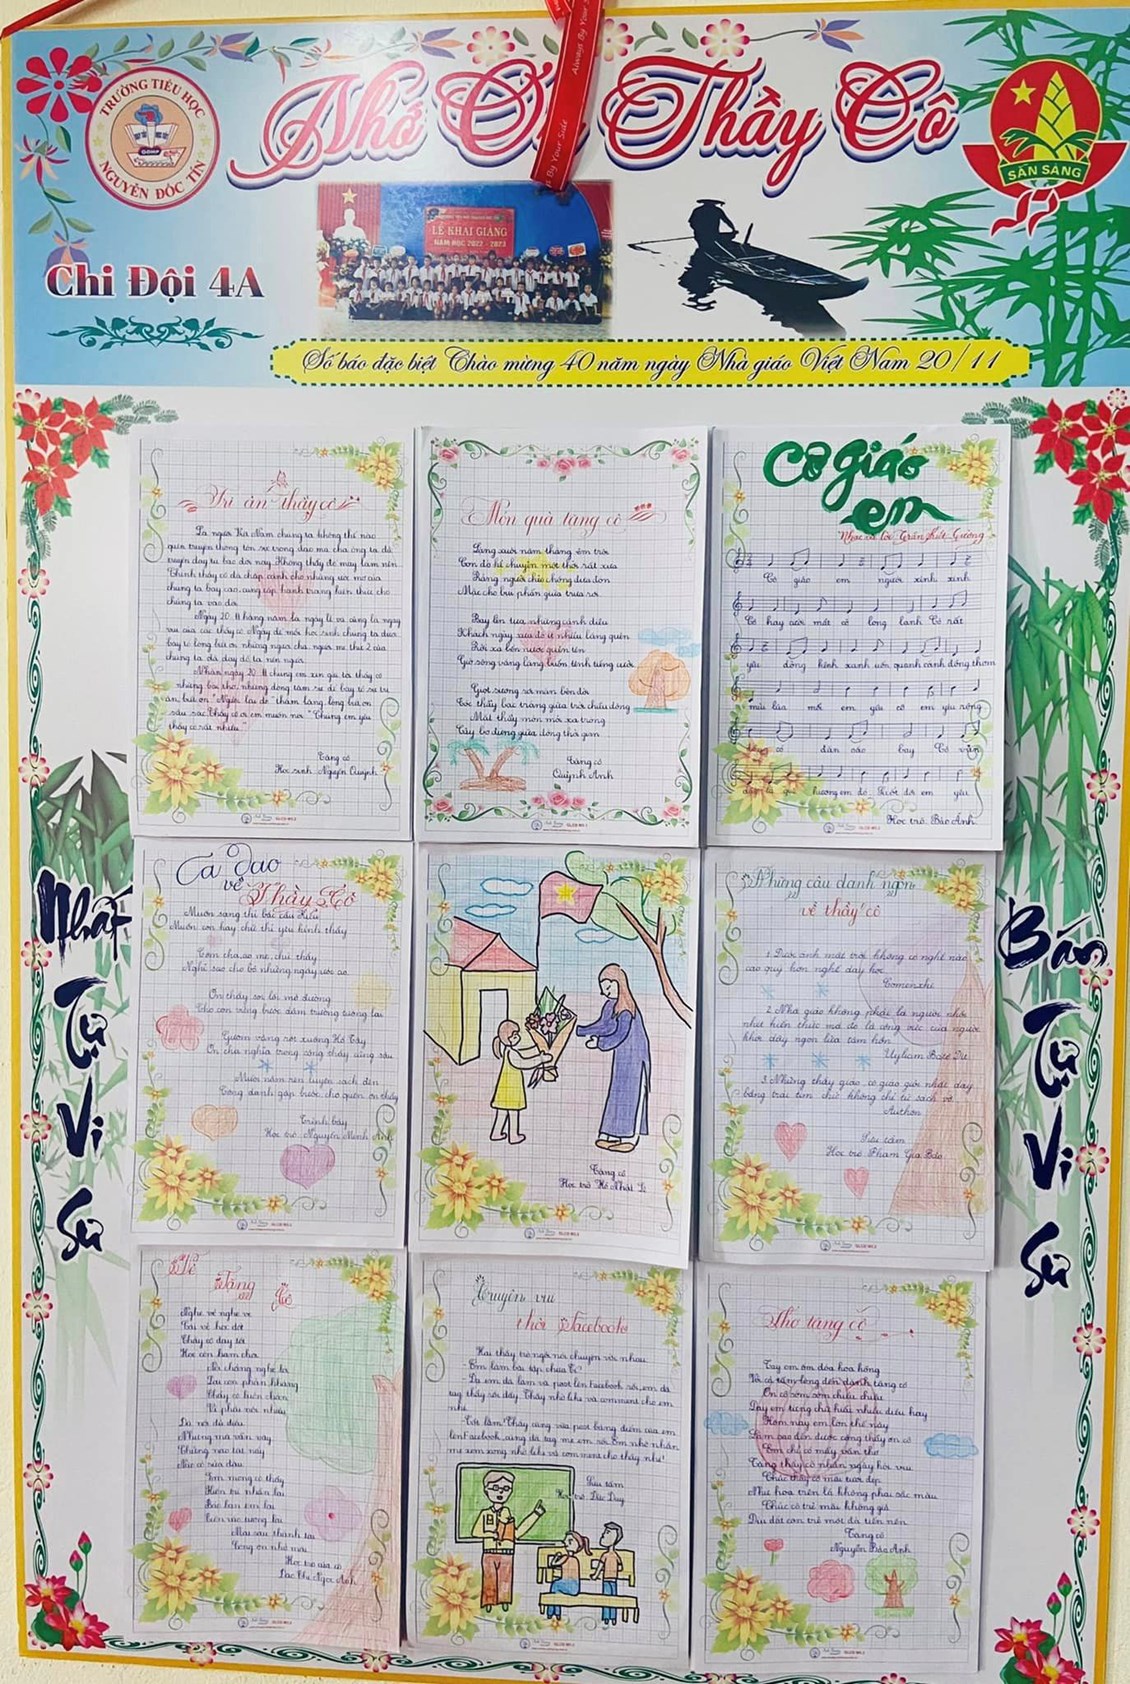 Always By Your Side
By Your Side
TRƯỜNG TIỂU HỌC
NGUYỄN ĐỐC TÍN
Nhớ Ơn Thầy Cô
SẴN SÀNG
LỄ KHAI GIẢNG
NĂM HỌC 2022 - 2023
Chi Đội 4A
Số báo đặc biệt Chào mừng 40 năm ngày Nhà giáo Việt Nam 20/11
Nhất
Tự
Vi
Sư
Bán
Tự
Vi
Sư
Tri ân thầy cô
Là người Việt Nam chúng ta không thể nào
quên truyền thống tôn sư trọng đạo mà cha ông ta đã
truyền dạy từ bao đời nay. Không thầy đố mày làm nên.
Chính thầy cô đã chắp cánh cho những ước mơ của
chúng ta bay cao, cung cấp hành trang kiến thức cho
chúng ta vào đời.
Ngày 20. 11 hằng năm là ngày lễ vô cùng là ngày
vui của các thầy cô. Ngày để mỗi học sinh chúng ta được
bày tỏ lòng biết ơn những người cha, người mẹ thứ 2 của
chúng ta đã dạy dỗ ta nên người.
Nhân ngày 20. 11 chúng em xin gửi tới thầy cô
những bài thơ, những dòng tâm sự để bày tỏ sự tri
ân, biết ơn "Người lái đò" thầm lặng, lòng biết ơn
sâu sắc. Thầy cô ơi em muốn nói "Chúng em yêu
thầy cô rất nhiều"
Tặng cô
Học sinh Nguyễn Quỳnh
Món quà tặng cô
Lặng xuôi năm tháng êm trôi
Con đò kể chuyện một thời rất xưa
Rằng người chèo chống đón đưa
Mặc cho bụi phấn giữa trưa rơi.
Bay lên tựa những cánh diều
Khách ngày xưa đó ít nhiều lãng quên
Rời xa bến nước quên tên
Giờ sông vắng lặng buồn tênh tiếng cười
Giọt sương sa mãi bên đời
Tóc thầy bạc trắng giữa trời chiều đông
Mắt thầy mòn mỏi xa trông
Cây bơ đứng giữa dòng thời gian
Tặng cô
Quỳnh Anh
Cô giáo
em
Nhạc và lời: Trần Kiết Tường
Cô giáo em người xinh xinh
Cô hay cười mắt cô long lanh Cô rất
yêu đồng kênh xanh uốn quanh cánh đồng thơm
mùi lúa mới em yêu cô em yêu rộng
cô đàn sáo bay Cô vẫn
quê hương em đó Suốt đời em yêu
Học trò: Bảo Ánh
Ca dao
về
Thầy Cô
Muốn sang thì bắc cầu Kiều
Muốn con hay chữ thì yêu kính thầy
Cơm cha, áo mẹ, chữ thầy
Nghĩ sao cho bõ những ngày ước ao.
Ơn thầy soi lối mở đường
Cho con vững bước dặm trường tương lai
Gươm vàng rớt xuống Hồ Tây
Ơn cha nghĩa trọng công thầy cũng sâu
Mười năm rèn luyện sách đèn
Công danh gặp bước chớ quên ơn thầy
Trình bày
Học trò Nguyễn Minh Anh
Tặng cô
Học trò Hồ Nhật Lệ
Những câu danh ngôn
về thầy cô
1. Dưới ánh mặt trời không có nghề nào
cao quý hơn nghề dạy học.
Comenxki
2. Nhà giáo không phải là người nhồi
nhét kiến thức mà đó là công việc của người
khơi dậy ngọn lửa tâm hồn.
Uyliam Batơ Dit
3. Những thầy giáo, cô giáo giỏi nhất dạy
bằng trái tim chứ không chỉ từ sách vở.
Authon
Sưu tầm
Học trò Phạm Gia Bảo
Vè
Tặng Cô
Nghe vẻ nghe ve
Cái vè học dốt
Thầy cô dạy tốt
Học còn ham chơi
Nói chẳng nghe lời
Lại còn phản kháng
Thầy cô buồn chán
Vì phải nói nhiều
Dù nói đủ điều
Nhưng mà vẫn vậy
Chúng nào tật nấy
Như cô sửa đâu
Em mong cô thầy
Hiền từ nhẫn lại
Bảo ban em lại
Bước vào tương lai
Mai sau thành tài
Công ơn nhớ mãi
Học trò của cô
Lâc Thị Ngọc Ánh
Chuyện vui
thời Facebook
Hai thầy trò ngồi nói chuyện với nhau.
- Em làm bài tập chưa Tí?
- Dạ em đã làm và post lên Facebook rồi, em đã
tag thầy rồi đấy. Thầy nhớ like và comment cho em
nhé.
- Tốt lắm. Thầy cũng vừa post bảng điểm của em
lên Facebook, cũng đã tag mẹ em rồi. Em nhớ nhắn
mẹ xem xong nhớ like và comment cho thầy nhé!
Sưu tầm
Học trò: Đức Duy
Thơ tặng cô
Tay em ôm đóa hoa hồng
Với cả tấm lòng đến dành tặng cô
Ơn cô sớm sớm chiều chiều
Dạy em từng chữ hiểu nhiều điều hay
Hôm nay em lớn thế này
Làm sao đền được công thầy ơn cô
Em chỉ có mấy vần thơ
Tặng thầy cô nhân ngày hội vui
Chúc thầy cô mãi tươi đẹp
Như hoa trên lá không phai sắc màu
Chúc cô trẻ mãi không già
Dìu dắt con trẻ mới đà tiến nên
Tặng cô
Nguyễn Bảo Anh